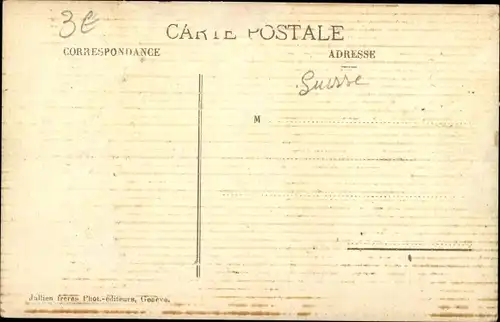 3€
CARTE POSTALE
CORRESPONDANCE
ADRESSE
Suisse
M
Jullien frères Phot.-éditeurs, Genève.